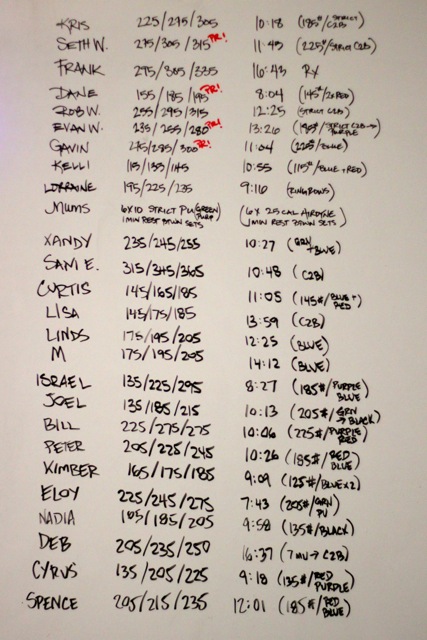 KRIS 225/295/305 10:18 (185#/STRICT C2B)
SETH W. 275/305/315 PR! 11:45 (225#/STRICT C2B)
FRANK 295/305/335 16:43 RX
DANE 155/185/195 PR! 8:04 (145#/2xRED)
ROB W. 255/295/315 12:25 (STRICT C2B)
EVAN W. 235/255/280 PR! 13:26 (185#/STRICT C2B→ PURPLE)
GAVIN 275/285/300 PR! 11:04 (225#/BLUE)
KELLI 115/135/145 10:55 (115#/BLUE+RED)
LORRAINE 195/225/235 9:16 (RING ROWS)
MUMS 6x10 STRICT PU (GREEN/PURP) (6x 25 CAL AIRDYNE
1 MIN REST BTWN SETS 1 MIN REST BTWN SETS)
XANDY 235/245/255 10:27 (GRN+BLUE)
SAM E. 315/345/365 10:48 (C2B)
CURTIS 145/165/185 11:05 (145#/BLUE+RED)
LISA 145/175/185 13:59 (C2B)
LINDS 175/195/205 12:25 (BLUE)
M 175/195/205 14:12 (BLUE)
ISRAEL 135/225/295 8:27 (185#/PURPLE BLUE)
JOEL 135/185/215 10:13 (205#/GRN→BLACK)
BILL 225/275/275 10:06 (225#/PURPLE RED)
PETER 205/225/245 10:26 (185#/RED BLUE)
KIMBER 165/175/185 9:09 (125#/BLUEx2)
ELOY 225/245/275 7:43 (205#/GRN PU)
NADIA 165/185/205 9:58 (135#/BLACK)
DEB 205/235/250 16:37 (7 MU→C2B)
CYRUS 135/205/225 9:18 (135#/RED PURPLE)
SPENCE 205/215/235 12:01 (185#/RED BLUE)